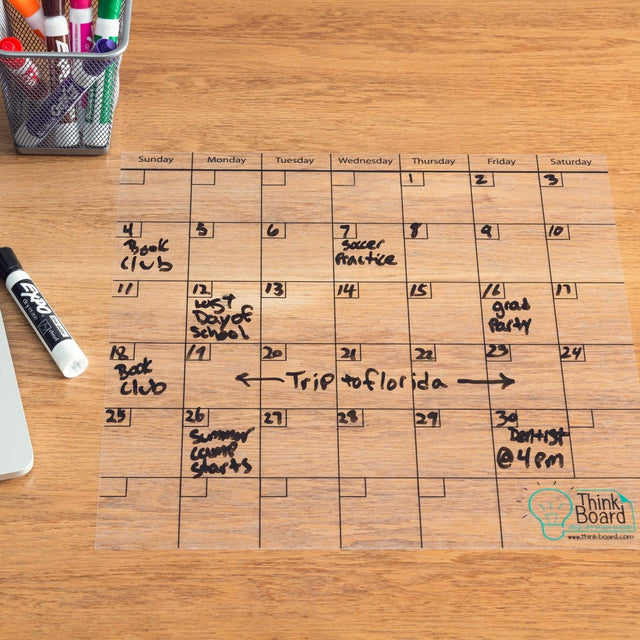 Sunday Monday Tuesday Wednesday Thursday Friday Saturday
1 2 3
4 5 6 7 8 9 10
Book Soccer
Club Practice
11 12 13 14 15 16 17
last grad
Day of Party
School
18 19 20 21 22 23 24
Book
Club
Trip to florida
25 26 27 28 29 30
Summer Dentist
camp @ 4 pm
starts
Think
Board
www.think-board.com
EXPO
dry erase